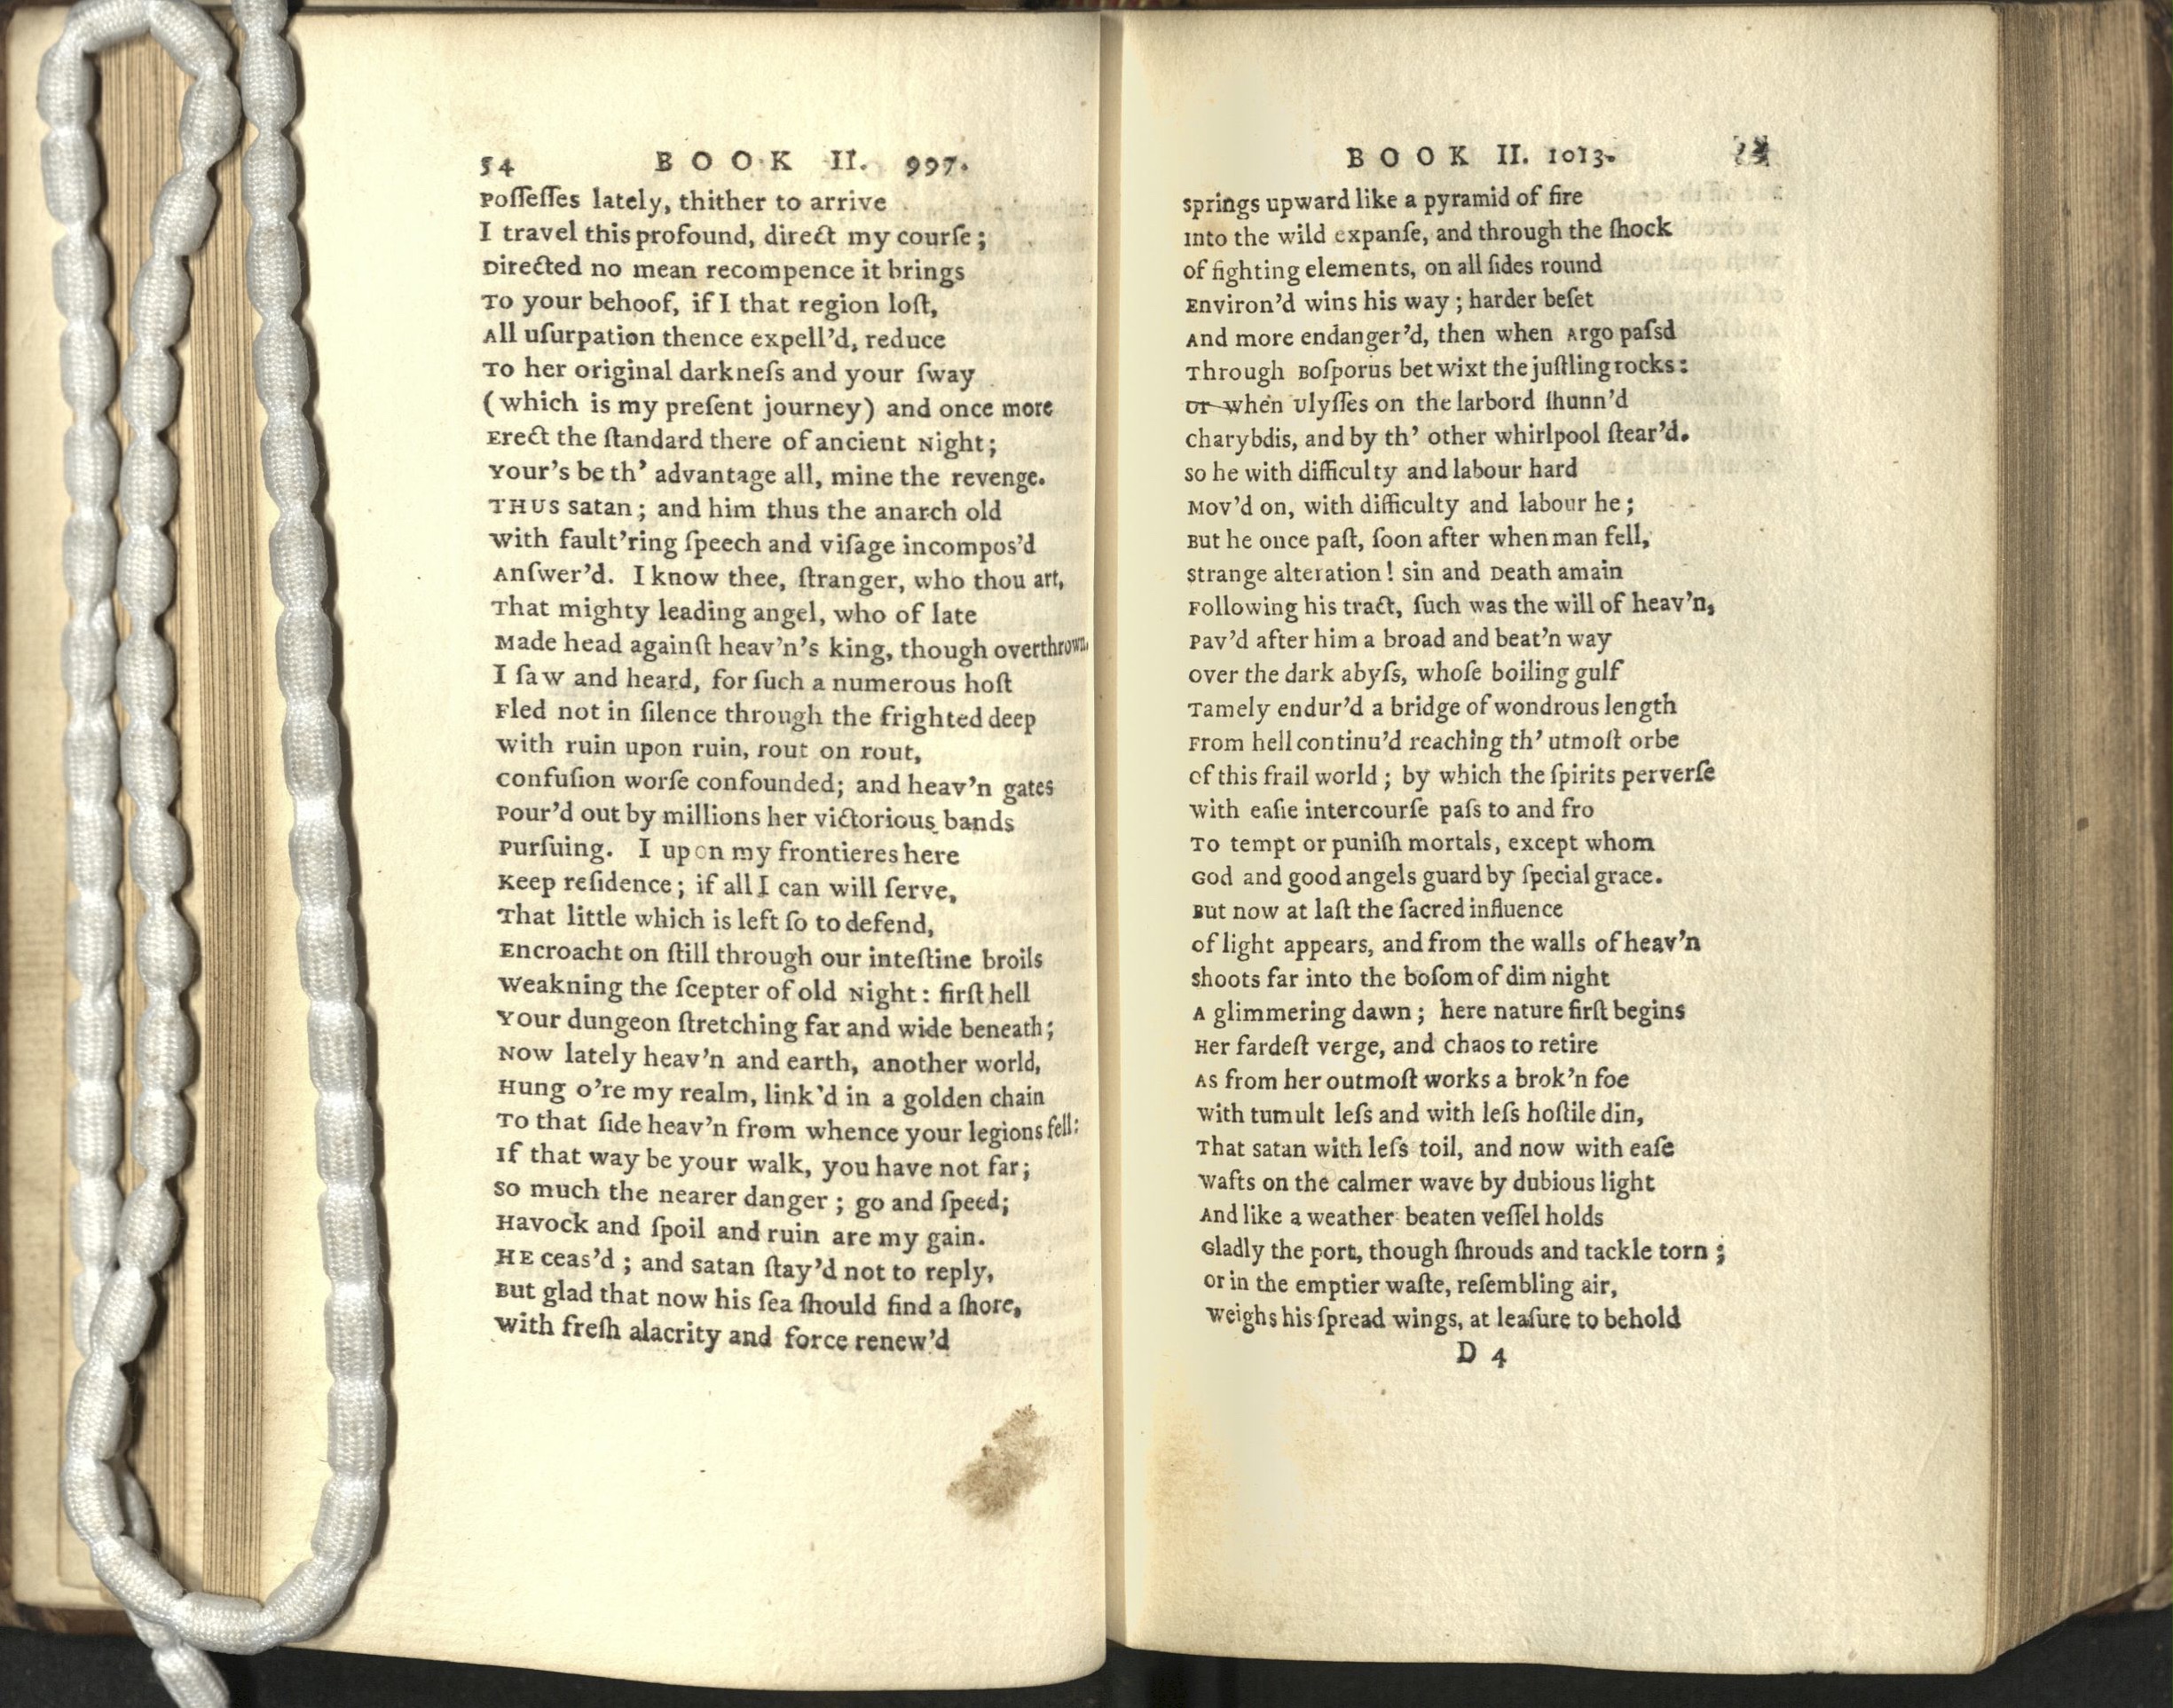 54 BOOK II. 997.
Poſſeſſes lately, thither to arrive
I travel this profound, direct my courſe;
Directed no mean recompence it brings
To your behoof, if I that region loſt,
All uſurpation thence expell'd, reduce
To her original darkneſs and your ſway
(which is my preſent journey) and once more
Erect the ſtandard there of ancient Night;
Your's be th' advantage all, mine the revenge.
THUS satan; and him thus the anarch old
with fault'ring ſpeech and viſage incompos'd
Anſwer'd. I know thee, ſtranger, who thou art,
That mighty leading angel, who of late
Made head againſt heav'n's king, though overthrown.
I ſaw and heard, for ſuch a numerous hoſt
Fled not in ſilence through the frighted deep
with ruin upon ruin, rout on rout,
confuſion worſe confounded; and heav'n gates
Pour'd out by millions her victorious bands
Purſuing. I upon my frontieres here
Keep reſidence; if all I can will ſerve,
That little which is left ſo to defend,
Encroacht on ſtill through our inteſtine broils
weakning the ſcepter of old Night: firſt hell
Your dungeon ſtretching far and wide beneath;
Now lately heav'n and earth, another world,
Hung o're my realm, link'd in a golden chain
To that ſide heav'n from whence your legions fell:
If that way be your walk, you have not far;
so much the nearer danger; go and ſpeed;
Havock and ſpoil and ruin are my gain.
HE ceas'd; and satan ſtay'd not to reply,
But glad that now his ſea ſhould find a ſhore,
with freſh alacrity and force renew'd
BOOK II. 1013.
springs upward like a pyramid of fire
Into the wild expanſe, and through the ſhock
of fighting elements, on all ſides round
Environ'd wins his way; harder beſet
And more endanger'd, then when Argo paſsd
Through Boſporus betwixt the juſtling rocks:
or when Ulyſſes on the larbord ſhunn'd
charybdis, and by th' other whirlpool ſtear'd.
so he with difficulty and labour hard
Mov'd on, with difficulty and labour he;
But he once paſt, ſoon after when man fell,
strange alteration! sin and Death amain
Following his tract, ſuch was the will of heav'n,
Pav'd after him a broad and beat'n way
over the dark abyſs, whoſe boiling gulf
Tamely endur'd a bridge of wondrous length
From hell continu'd reaching th' utmoſt orbe
of this frail world; by which the ſpirits perverſe
with eaſie intercourſe paſs to and fro
To tempt or puniſh mortals, except whom
God and good angels guard by ſpecial grace.
But now at laſt the ſacred influence
of light appears, and from the walls of heav'n
shoots far into the boſom of dim night
A glimmering dawn; here nature firſt begins
Her fardeſt verge, and chaos to retire
As from her outmoſt works a brok'n foe
with tumult leſs and with leſs hoſtile din,
That satan with leſs toil, and now with eaſe
wafts on the calmer wave by dubious light
And like a weather beaten veſſel holds
Gladly the port, though ſhrouds and tackle torn;
or in the emptier waſte, reſembling air,
weighs his ſpread wings, at leaſure to behold
D 4